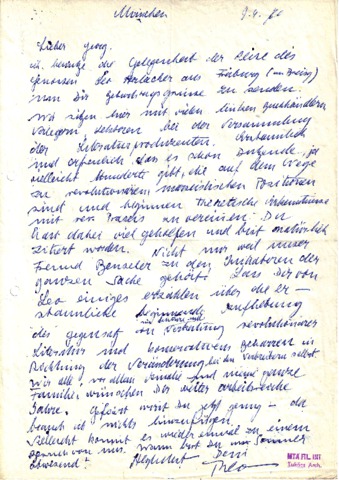 München 9.4.70
Lieber Georg.
ich benutze die Gelegenheit der Reise des
Genossen Leo Horlacher aus Freiburg
um Dir Geburtstagsgrüsse zu senden.
Wir sitzen hier mit vielen linken Buchhändlern
Verlegern, Lektoren bei der Versammlung
der Literaturproduzenten. Erstaunlich
und erfreulich, dass es schon Dutzende, ja
vielleicht hunderte gibt, die auf dem Wege
zu revolutionären marxistischen Positionen
sind und beginnen theoretische Erkenntnisse
mit der Praxis zu vereinen. Du
hast dabei viel geholfen und bist
zitiert worden. Nicht nur weil unser
Freund Benseler zu den Initiatoren der
ganzen Sache gehört. Lass Dir von
Leo einiges erzählen über die er-
staunliche beginnende Aufhebung
des Gegensatzes Verbreitung revolutionärer
Literatur und
Richtung der Veränderung bei den Verbreitern selbst
Wir alle, vor allem und meine ganze
Familie, wünschen Dir weiter arbeitsreiche
Jahre. Gefeiert wirst Du jetzt genug - da
brauch ich nichts hinzuzufügen.
Vielleicht kommt es wieder einmal zu einem
Gespräch von uns. Wann bist du im Sommer
abwesend? Herzlichst Dein
Theo
MTA FIL. INT.
Lukács Arch.